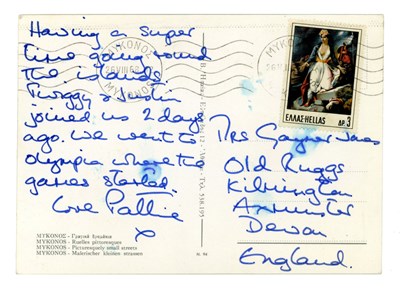 Having a super
time going round
the islands.
Twiggy & Justin
joined us 2 days
ago. We went to
Olympia where the
games started.
Love Pattie
x
ΜΥΚΟΝΟΣ
ΜΥΚΟΝΟΣ
ΕΛΛΑΣ-HELLAS
ΔΡ. 3
Mrs Gaynor Jones
Old Ruggs
Kilmington
Axminster
Devon
England.
ΜΥΚΟΝΟΣ - Γραφικά δρομάκια
MYKONOS - Ruelles pittoresques
MYKONOS - Picturesquely small streets
MYKONOS - Malerischer kleiner strassen